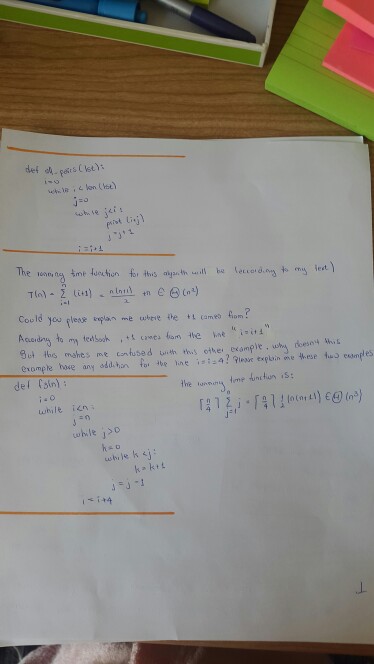 def all_pairs(lst):
i=0
while i < len(lst)
j=0
while j<i:
print (i+j)
j=j+1
i=i+1
The running time function for this algorith will be (according to my text)
T(n) = n Σ i=1 (i+1) = n(n+1)/2 + n ∈ Θ(n²)
Could you please explain me where the +1 comes from?
According to my textbook, +1 comes from the line "i=i+1"
But this makes me confused with this other example, why doesn't this
example have any addition for the line i=i+4? Please explain me these two examples
def f3(n):
i=0
while i<n:
j=n
while j>0
k=0
while k<j:
k=k+1
j=j-1
i=i+4
the running time function is:
⌈n/4⌉ n Σ j=1 j = ⌈n/4⌉ 1/2 (n(n+1)) ∈ Θ(n³)
1